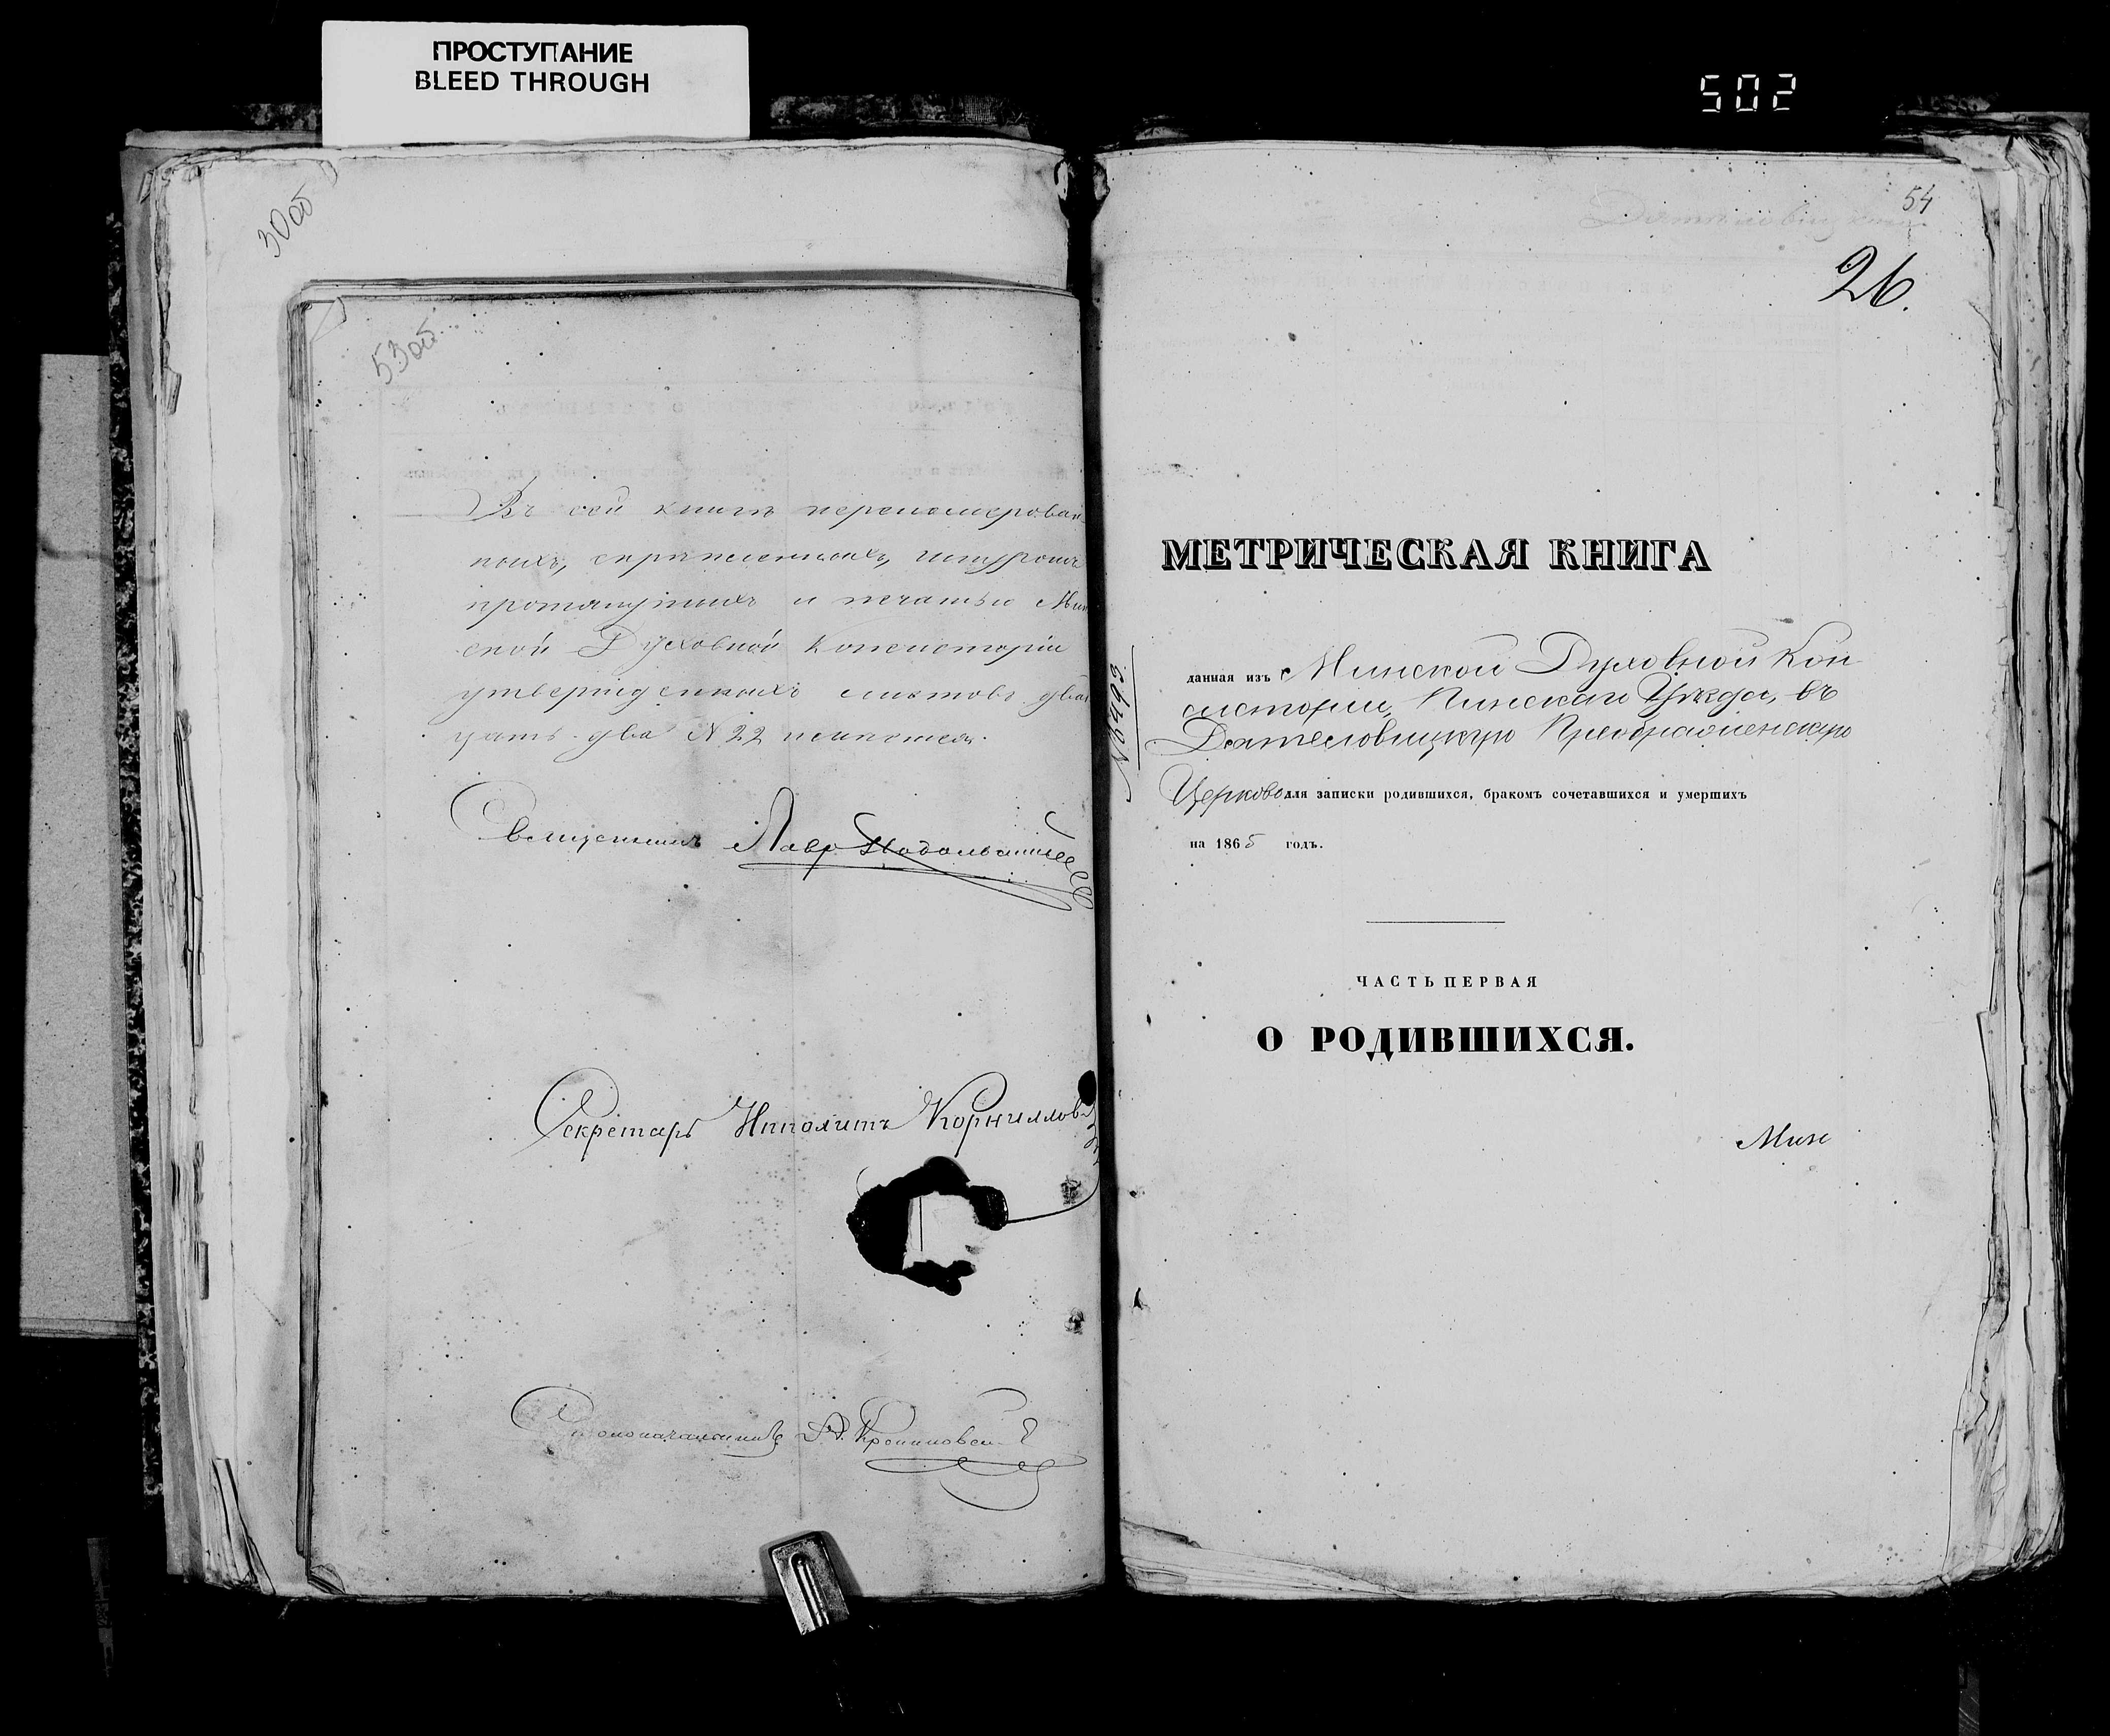 ПРОСТУПАНИЕ
BLEED THROUGH
502
30об
53об
Въ сей книгѣ перенумерован
ныхъ, скрѣпленныхъ, шнуромъ
протянутыхъ и печатью Мин
ской Духовной Консисторіи
утвержденныхъ листовъ два
цать два № 22 имѣется.
Священникъ Лавр
Секретарь Ипполитъ Корнилов
Столоначальникъ
54
26.
МЕТРИЧЕСКАЯ КНИГА
№6493
данная изъ Минской Духовной Кон
систоріи, Пинскаго Уѣзда, въ
Дятеловицкую Преображенскую
Церковь для записки родившихся, бракомъ сочетавшихся и умершихъ
на 1865 годъ.
ЧАСТЬ ПЕРВАЯ
О РОДИВШИХСЯ.
Мин